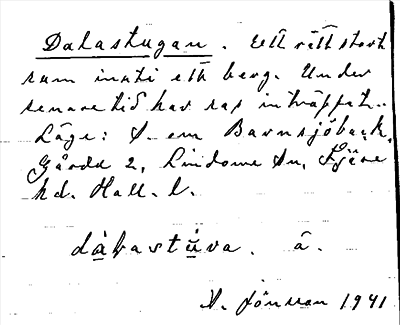 Dalastugan. Ett rätt stort
rum inuti ett berg. Under
senare tid har ras inträffat.
Läge: S. om Barnsjöback.
Gårda 2, Lindome sn, Fjäre
hd. Hall. l.
dàḷastu̇va. â.
A. Jönsson 1941